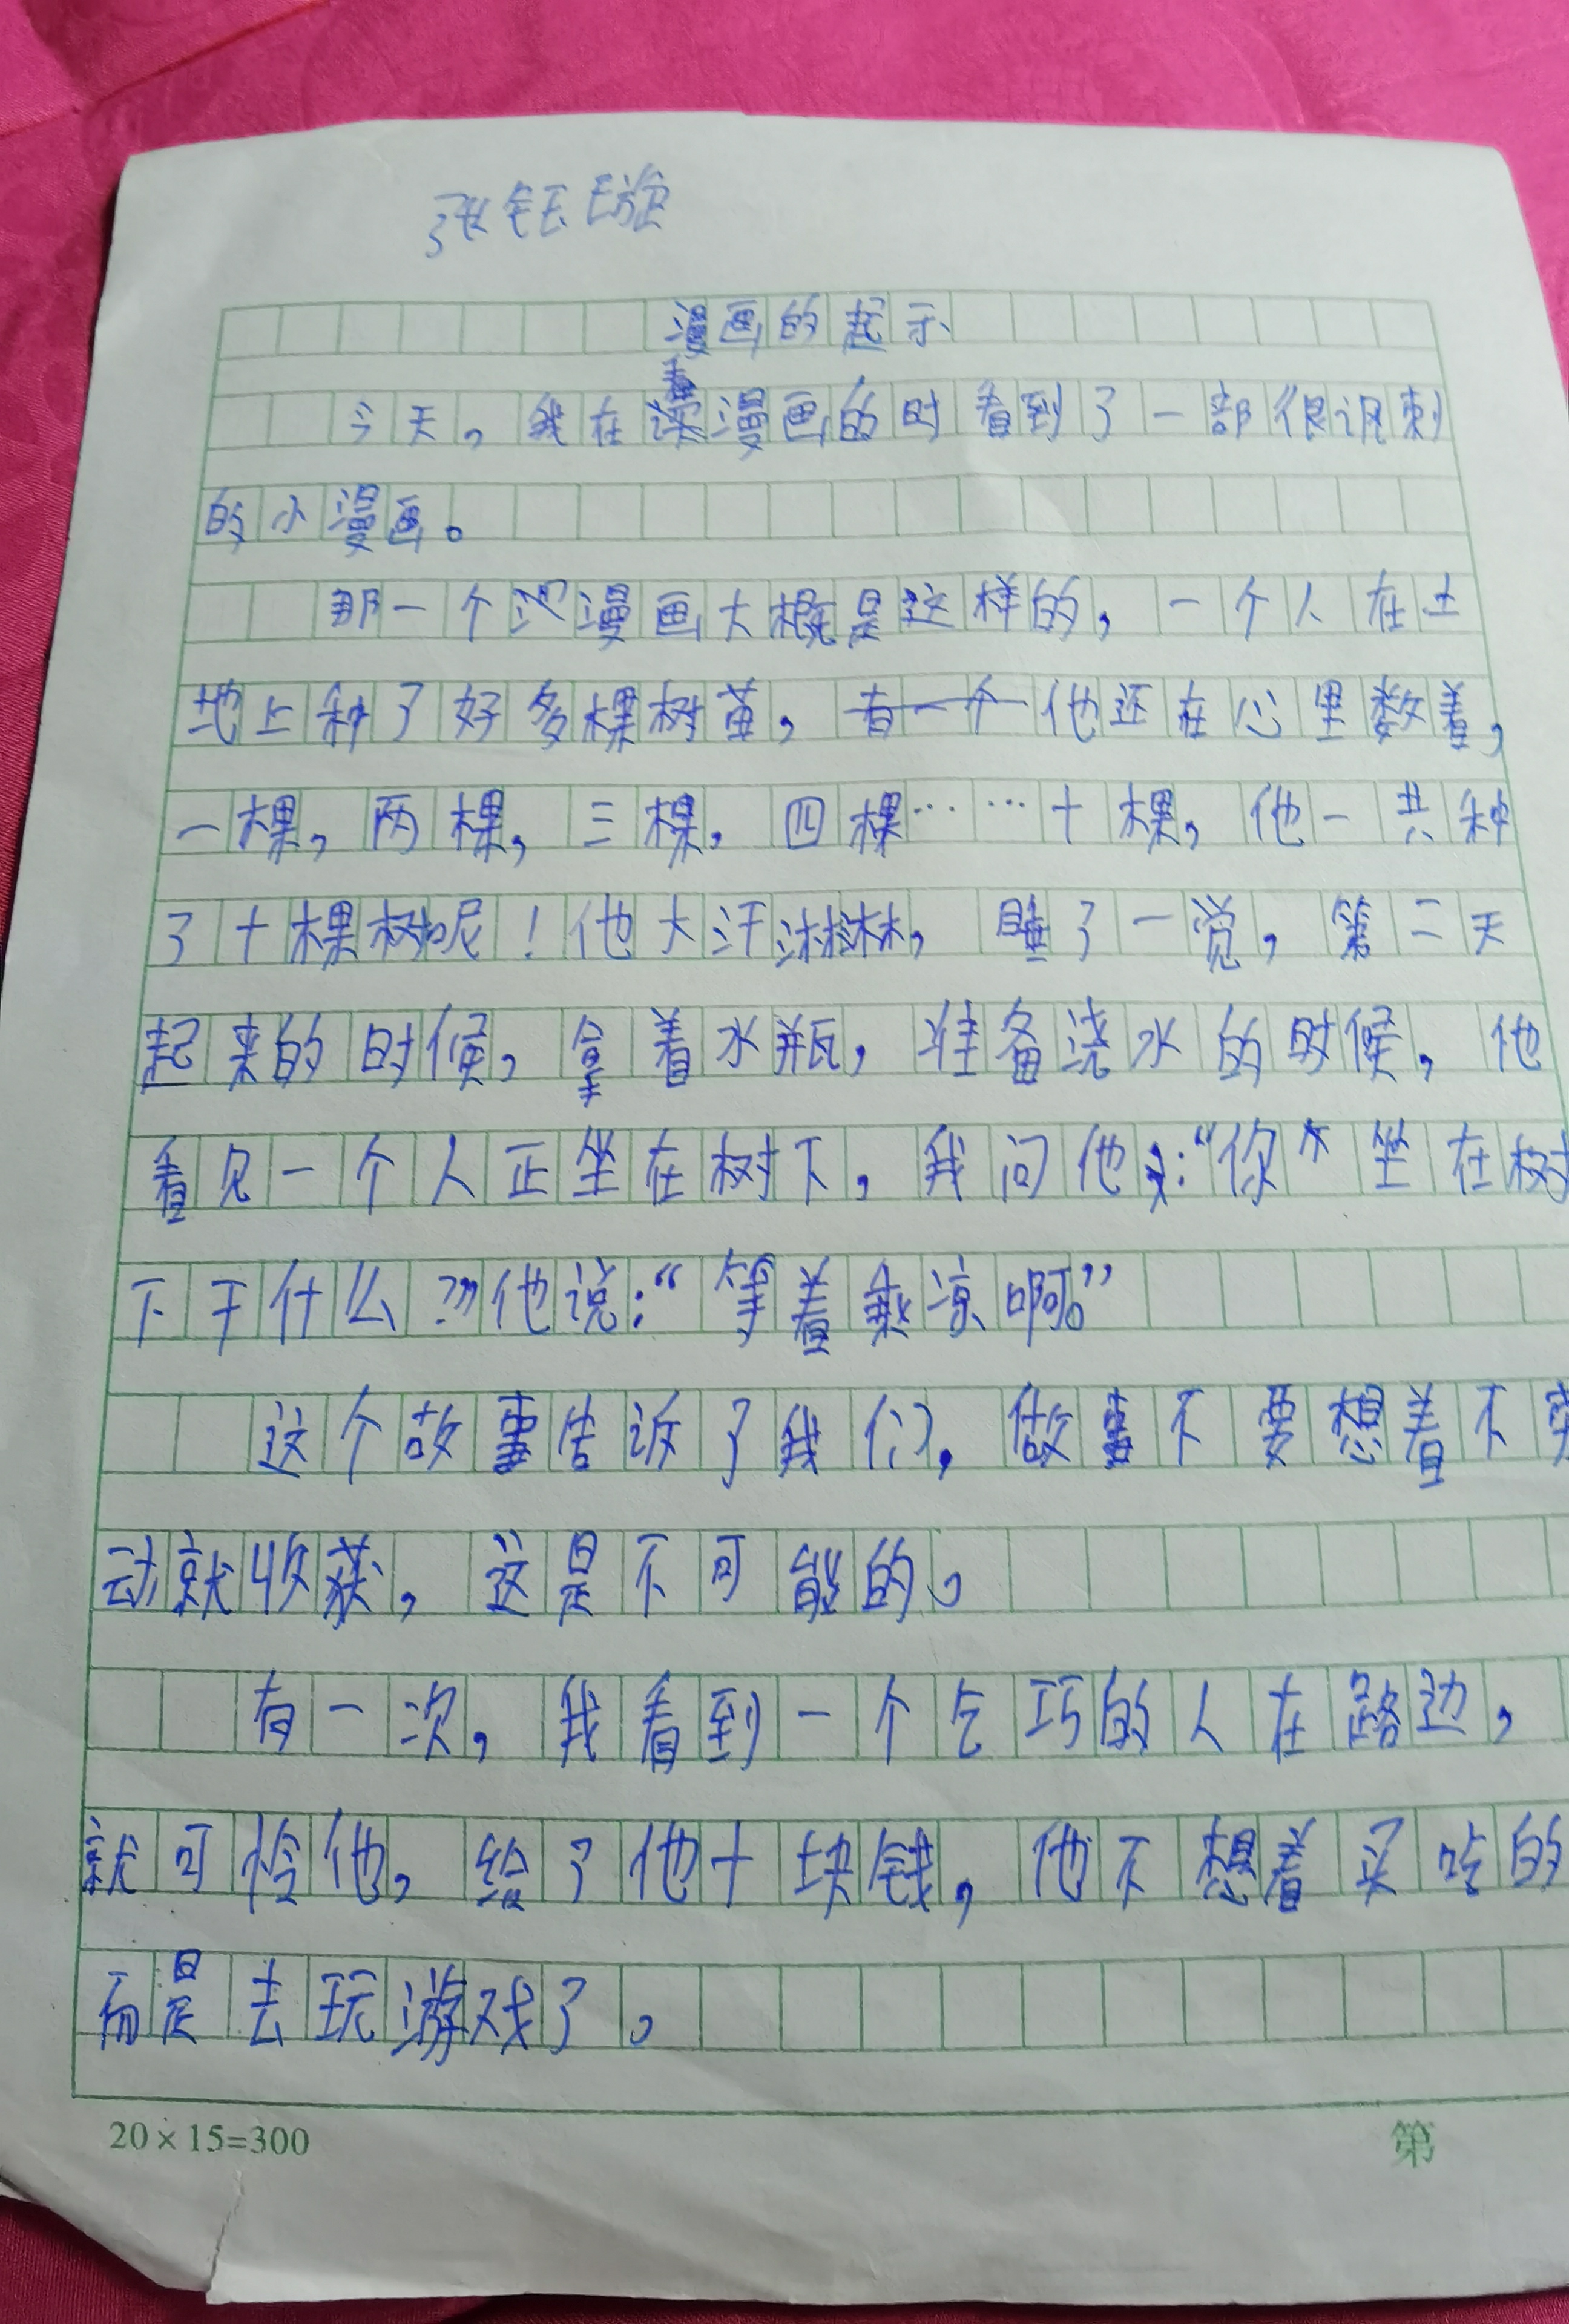 张钰璇
漫画的起示
今天，我在读漫画的时看到了一部很讽刺
的小漫画。
那一个漫画大概是这样的，一个人在土
地上种了好多棵树苗，有一个他还在心里数着，
一棵，两棵，三棵，四棵……十棵，他一共种
了十棵树呢！他大汗淋林，睡了一觉，第二天
起来的时候，拿着水瓶，准备浇水的时候，他
看见一个人正坐在树下，我问他：“你坐在树
下干什么？”他说：“等着乘凉啊”
这个故事告诉了我们，做事不要想着不劳
动就收获，这是不可能的。
有一次，我看到一个乞巧的人在路边，
就可怜他，给了他十块钱，他不想着买吃的
而是去玩游戏了。
20×15=300
第